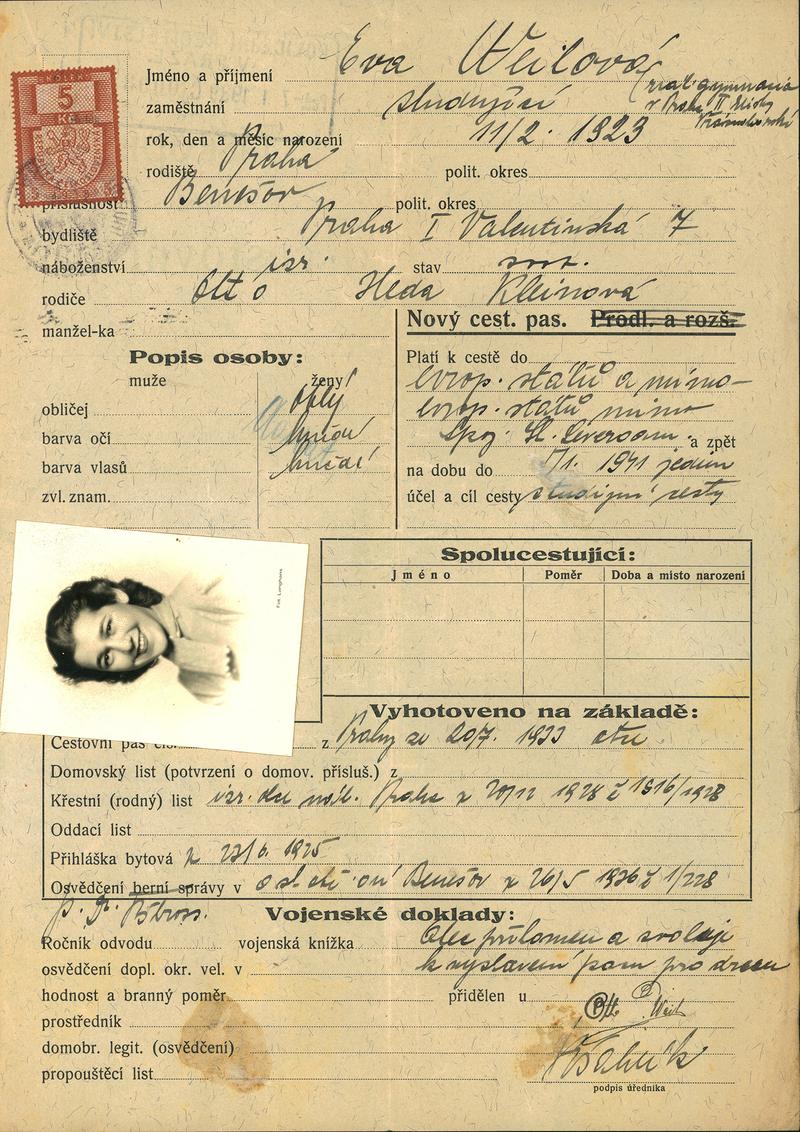 KOLEK
5
Kč
Jméno a příjmení Eva Weilová
zaměstnání studující (real. gymnasia
v Praze II
rok, den a měsíc narození 11/2. 1923
rodiště Praha polit. okres
příslušnost Benešov polit. okres
bydliště Praha I Valentinská 7
náboženství izr. stav svob.
rodiče Otto Heda Kleinová
manžel-ka
Nový cest. pas. Prodl. a rozš.
Popis osoby:
muže ženy
obličej oblý
barva očí hnědé
barva vlasů hnědé
zvl. znam.
Platí k cestě do
evrop. států a mimo-
evrop. států mimo
Spoj. St. Severoam. a zpět
na dobu do 5/1. 1941 jeden
účel a cíl cesty studijní cesty
Fot. Langhans
Spolucestující:
Jméno Poměr Doba a místo narození
Vyhotoveno na základě:
Cestovní pas čís. z Prahy ze 20/7. 1933 otce
Domovský list (potvrzení o domov. přísluš.) z
Křestní (rodný) list izr. obce náb. Praha z 20/12 1928 č 1516/1928
Oddací list
Přihláška bytová z 23/6. 1925
Osvědčení berní správy v Benešov z 26/5 1936 č 1/228
Vojenské doklady:
Ročník odvodu vojenská knížka Otec přítomen a svoluje
osvědčení dopl. okr. vel. v k vystavení pasu pro dceru
hodnost a branný poměr přidělen u
prostředník Otto Weil
domobr. legit. (osvědčení)
propouštěcí list
podpis úředníka